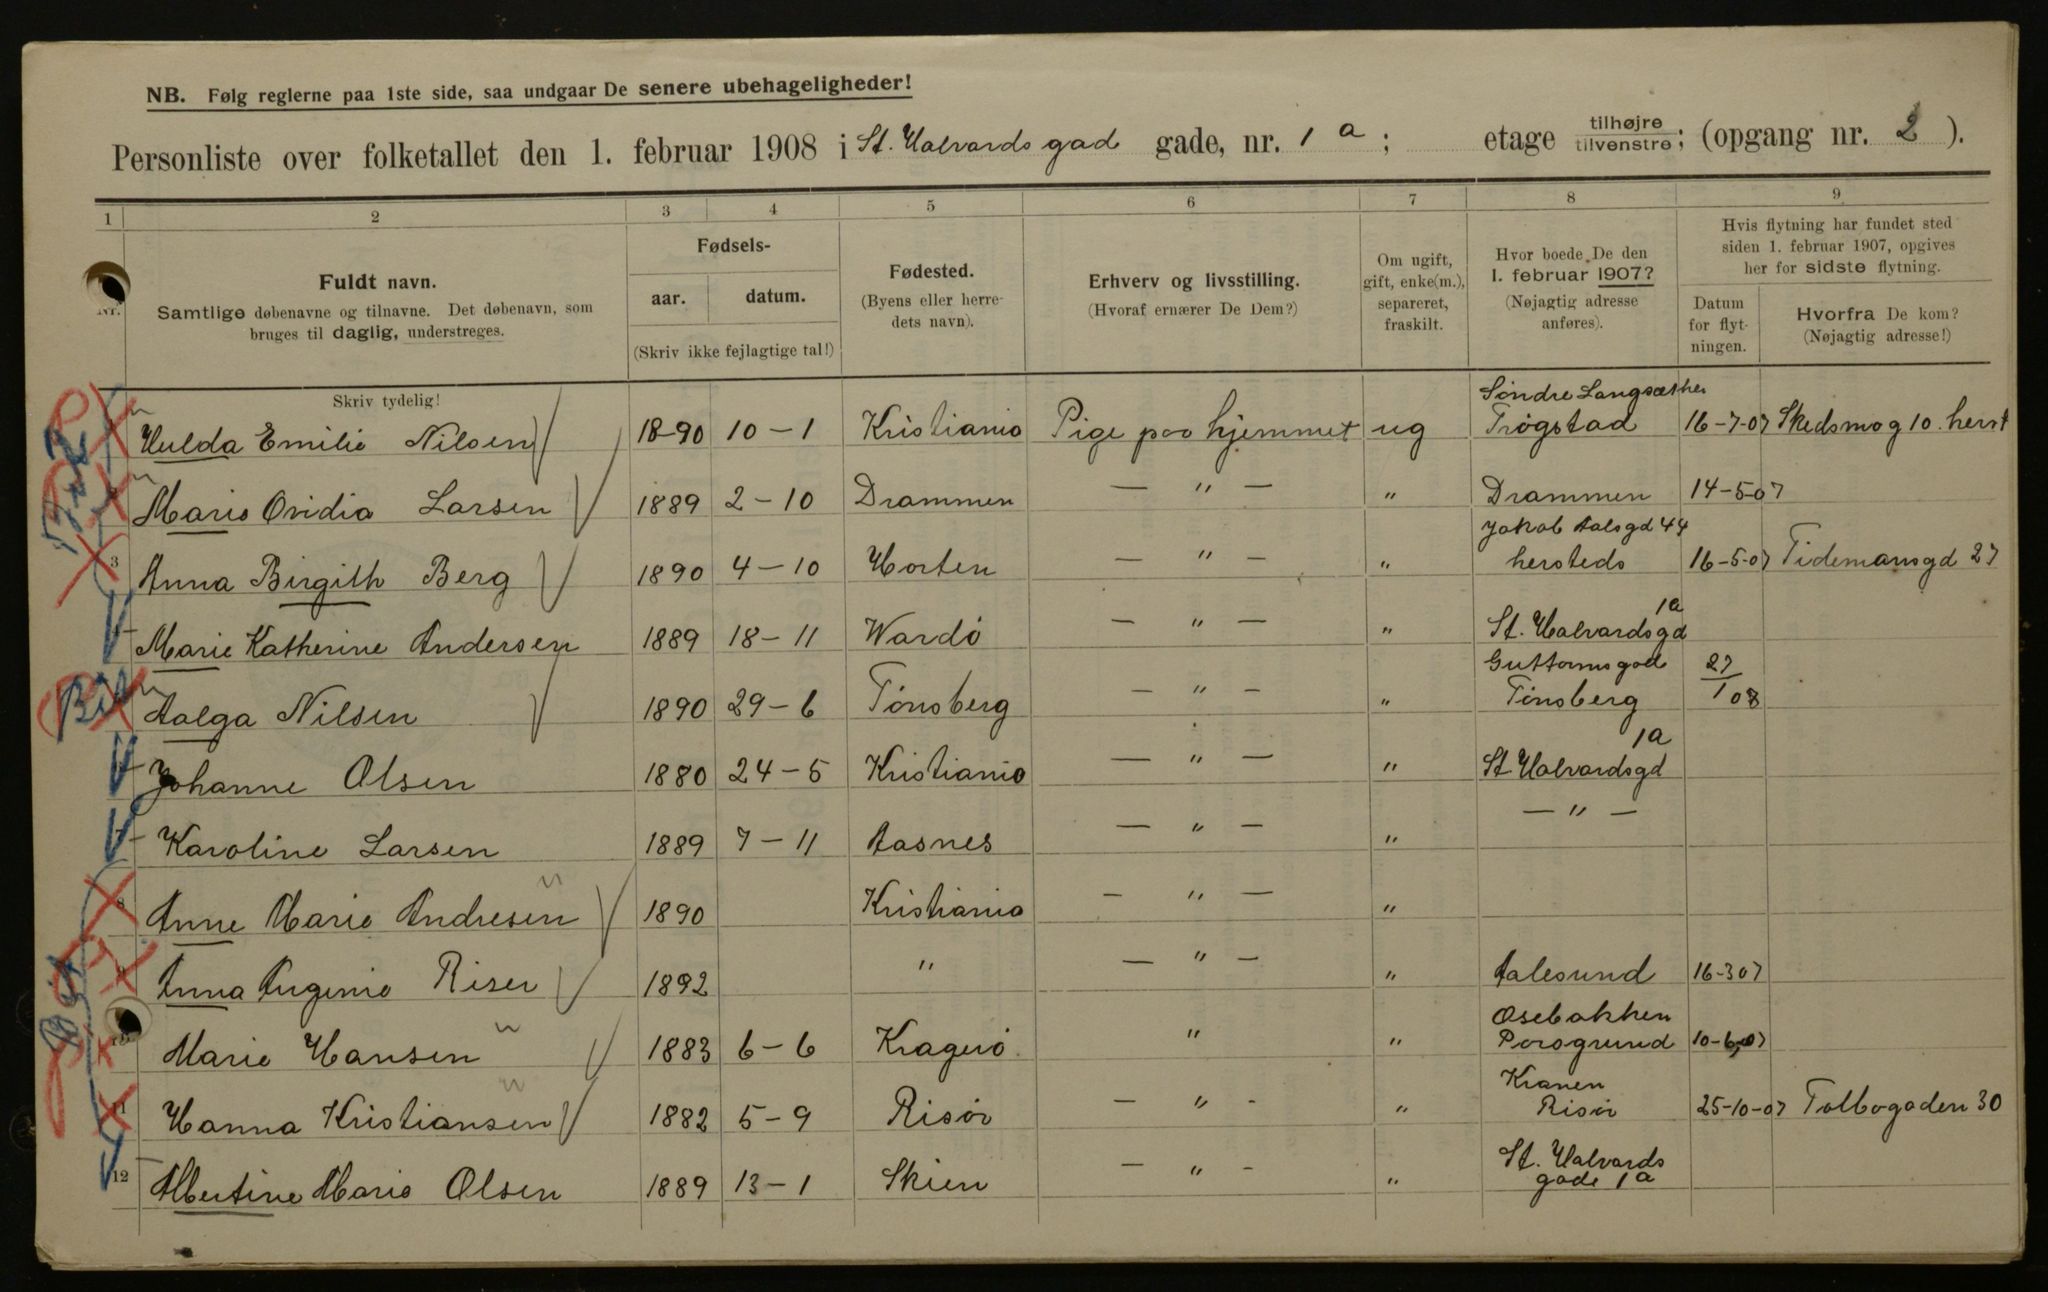 NB. Følg reglerne paa 1ste side, saa undgaar De senere ubehageligheder!
Personliste over folketallet den 1. februar 1908 i St. Halvards gad gade, nr. 1 a; etage tilhøjre tilvenstre; (opgang nr. 2 ).
1 2 3 4 5 6 7 8 9
Nr.
Fuldt navn.
Samtlige døbenavne og tilnavne. Det døbenavn, som
bruges til daglig, understreges.
Skriv tydelig!
Fødsels-
aar. datum.
(Skriv ikke fejlagtige tal!)
Fødested.
(Byens eller herre-
dets navn).
Erhverv og livsstilling.
(Hvoraf ernærer De Dem?)
Om ugift,
gift, enke(m.),
separeret,
fraskilt.
Hvor boede De den
1. februar 1907?
(Nøjagtig adresse
anføres).
Hvis flytning har fundet sted
siden 1. februar 1907, opgives
her for sidste flytning.
Datum
for flyt-
ningen.
Hvorfra De kom?
(Nøjagtig adresse!)
Söndre Langsæther
Hulda Emilie Nilsen 18-90 10-1 Kristiania Pige paa hjemmet ug Trögstad 16-7-07 Skedsmog 10. herst
Marie Ovidia Larsen 1889 2-10 Drammen — " — " Drammen 14-5-07
Jakob Aalsgd 44
3 Anna Birgith Berg 1890 4-10 Horten — " — " hersteds 16-5-07 Tidemansgd 27
1a
Marie Katherine Andersen 1889 18-11 Wardö — " — " St. Halvardsgd
Guttormsgad 27
Aalga Nilsen 1890 29-6 Tönsberg — " — " Tönsberg 1 08
1a
Johanne Olsen 1880 24-5 Kristiania — " — " St. Halvardsgd
7 Karoline Larsen 1889 7-11 Aasnes — " — " — " —
8 Anne Marie Andresen 1890 Kristiania — " — "
9 Anna Augenie Riser 1892 " — " — " Aalesund 16-307
Osebakken
10 Marie Hansen 1883 6-6 Kragerö " " Porsgrund 10-6-07
Kranen
11 Hanna Kristiansen 1882 5-9 Risör — " - " Risör 25-10-07 Tolbogaden 30
St. Halvards
12 Albertine Marie Olsen 1889 13-1 Skien — " - " gade 1a